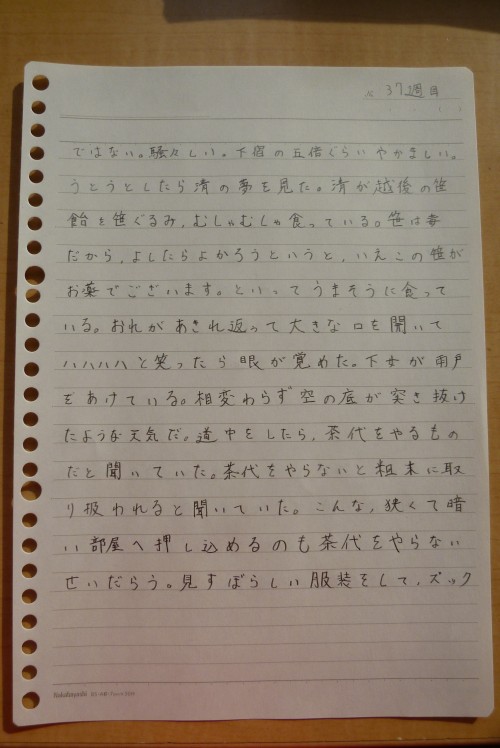 37週目
ではない。騒々しい。下宿の五倍ぐらいやかましい。
うとうとしたら清の夢を見た。清が越後の笹
飴を笹ぐるみ、むしゃむしゃ食っている。笹は毒
だから、よしたらよかろうというと、いえこの笹が
お薬でございます。といってうまそうに食って
いる。おれがあきれ返って大きな口を開いて
ハハハハと笑ったら眼が覚めた。下女が雨戸
をあけている。相変わらず空の底が突き抜け
たような天気だ。道中をしたら、茶代をやるもの
だと聞いていた。茶代をやらないと粗末に取
り扱われると聞いていた。こんな、狭くて暗
い部屋へ押し込めるのも茶代をやらない
せいだらう。見すぼらしい服装をして、ズック
Nakabayashi